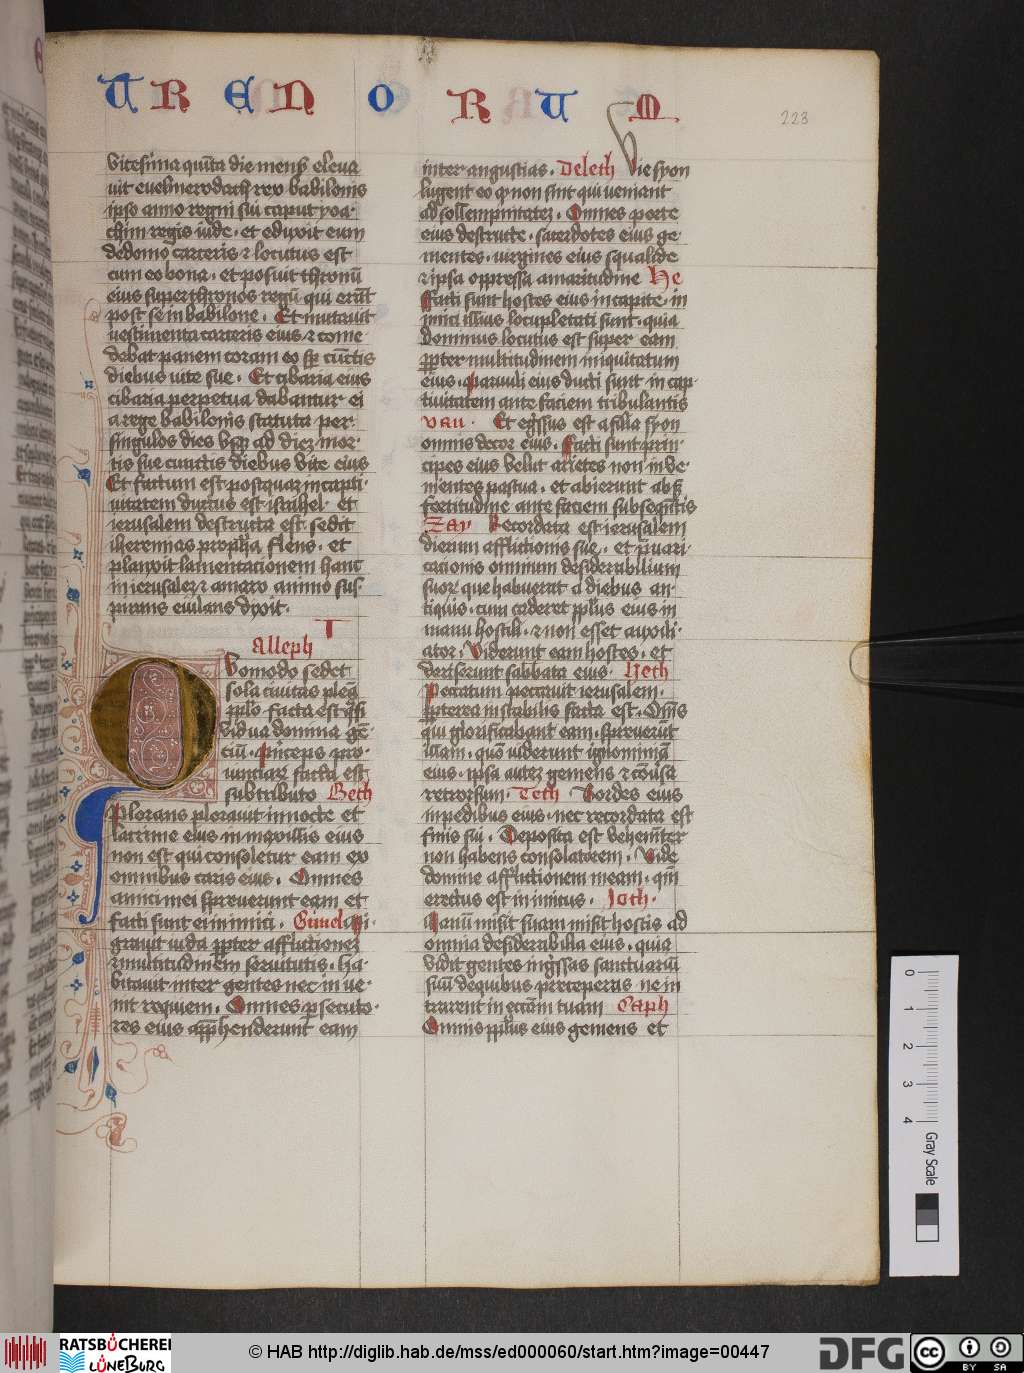 TRENORUM
223
vicesima quīta die menß eleva
vit evelmerodach rex babilonis
ipso anno regni sui caput yoa-
chim regis iude · et eduxit eum
de domo carceris ⁊ locutus est
cum eo bona · et posuit thronū
eius super thronos regū qui erāt
post se in babilone · Et mutavit
vestimenta carceris eius ⁊ come
debat panem coram eo sp̄ cūctis
diebus vite sue · Et cibaria eius
cibaria perpetua dabantur ei
a rege babilonis statuta per-
singulos dies vsq̄ ad diez mor-
tis sue cunctis diebus vite eius
Et factum est postquaz in capti-
vitatem ductus est israhel · et
ierusalem destructa est sedit
iheremias propha flens · et
planxit lamentacionem hanc
in ierusalez ⁊ amaro animo sus-
pirans eiulans dixit ·
Alleph
Quomodo sedet
sola civitas plea
pplo facta est qsi
vidua domina gē-
ciū · princeps pro-
vinciarū facta est
sub tributo Beth
Plorans ploravit in nocte et
lacrime eius in maxillis eius
non est qui consoletur eam ex
omnibus caris eius · Omnes
amici mei spreverunt eam et
facti sunt ei inimici · Gimel Mi
gravit iuda ppter afflictionez
⁊ multitudinem servitutis · ha-
bitavit inter gentes nec in ve-
nit requiem · Omnes psecuto-
res eius apphenderunt eam
inter angustias · Deleth Vie syon
lugent eo q̄ non sint qui veniant
ad sollempnitatez · Omnes porte
eius destructe · sacerdotes eius ge-
mentes · virgines eius squalide
⁊ ipsa oppressa amaritudine He
Facti sunt hostes eius in capite · in
imici illius locupletati sunt · quia
dominus locutus est super eam
ppter multitudinem iniquitatum
eius · Parvuli eius ducti sunt in cap-
tivitatem ante faciem tribulantis
vau · Et egssus est a filia syon
omnis decor eius · Facti sunt prin-
cipes eius velut arietes non in ve-
nientes pascua · et abierunt absq̄
fortitudine ante faciem subsequētis
Zay Recordata est ierusalem
dierum afflictionis sue · et pvari-
cacionis omnium desiderabilium
suor que habuerat a diebus an-
tiquis · cum caderet pplus eius in
manu hostili · ⁊ non esset auxili-
ator · Viderunt eam hostes · et
deriserunt sabbata eius · Heth
Peccatum peccavit ierusalem ·
ppterea instabilis facta est · Om̄s
qui glorificabant eam · spreverūt
illam · quō viderunt ignominiā
eius · ipsa autez gemens ⁊ cōversa
retrorsum · Teth Sordes eius
in pedibus eius · nec recordata est
finis sui · Deposita est vehemēter
non habens consolatorem · Vide
domine afflictionem meam · qm̄
erectus est inimicus · Ioth ·
Manū misit suam misit hostis ad
omnia desiderabilia eius · quia
vidit gentes ingssas sanctuariū
suū de quibus preceperas ne in
trarent in ecciam tuam Caph
Omnis pplus eius gemens et
0 1 2 3 4 Gray Scale
RATSBÜCHEREI
LÜNEBURG
© HAB http://diglib.hab.de/mss/ed000060/start.htm?image=00447
DFG
cc BY SA